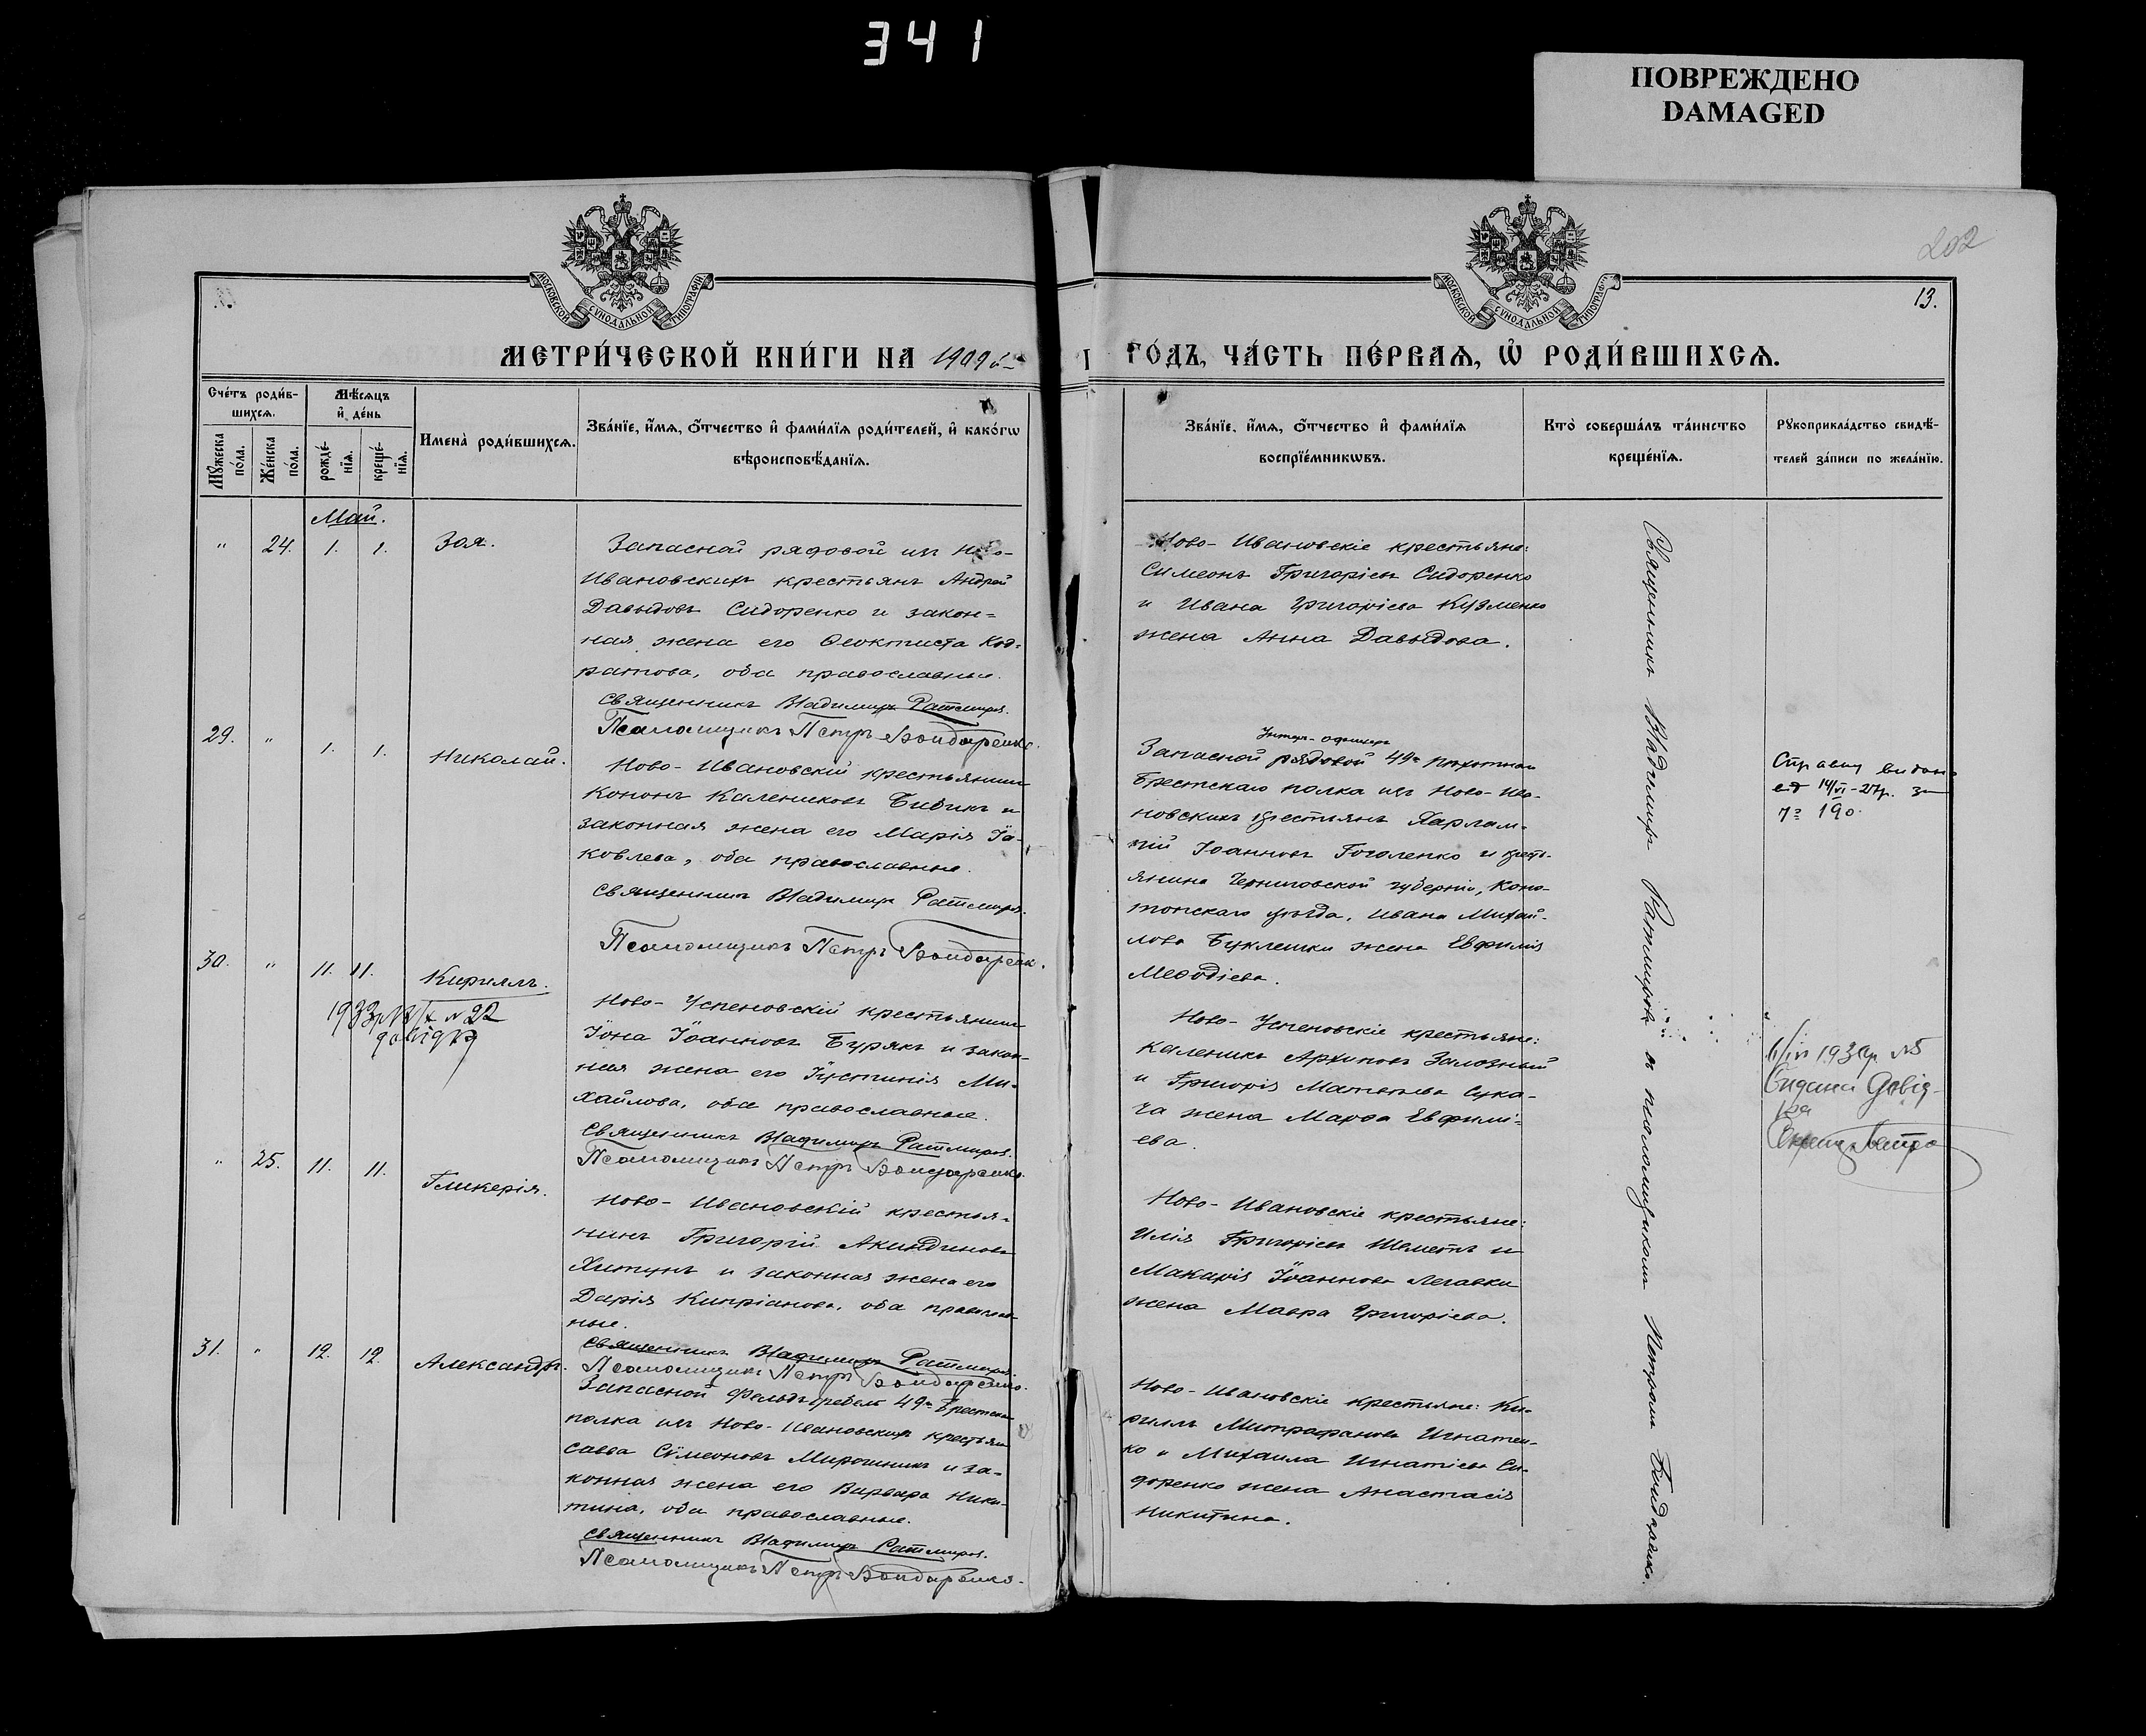 341
ПОВРЕЖДЕНО
DAMAGED
202
13.
МОСКОВСКОЙ СѴНОДАЛЬНОЙ ТИПОГРАФІИ
МОСКОВСКОЙ СѴНОДАЛЬНОЙ ТИПОГРАФІИ
МЕТРИ́ЧЕСКОЙ КНИ́ГИ НА 1909й
ГО́ДЪ, ЧА́СТЬ ПЕ́РВАѦ, Ѡ҆ РОДИ́ВШИХСѦ.
Сче́тъ роди́в-
шихсѧ.
Мꙋ́жеска по́ла.
Же́нска по́ла.
Мѣ́сѧцъ
и҆ де́нь
рожде́-
нїѧ.
креще́-
нїѧ.
Имена̀ роди́вшихсѧ.
Зва́нїе, и҆́мѧ, ѻ҆́тчество и҆ фами́лїѧ роди́телей, и҆ како́гѡ
вѣроисповѣ́данїѧ.
Зва́нїе, и҆́мѧ, ѻ҆́тчество и҆ фами́лїѧ
воспрїе́мникѡвъ.
Кто̀ соверша́лъ та́инство
креще́нїѧ.
Рꙋкоприкла́дство свидѣ́-
телей за́писи по жела́нїю.
Май.
" 24. 1. 1. Зоя.
Запасной рядовой изъ Ново-
Ивановскихъ крестьянъ Андрей
Давыдовъ Сидоренко и закон-
ная жена его Ѳеоктиста Код-
ратова, оба православные.
Священникъ Владимиръ Ратмировъ.
Псаломщикъ Петръ Бондаренко.
Ново-Ивановскіе крестьяне:
Симеонъ Григоріевъ Сидоренко
и Ивана Григоріева Кузменко
жена Анна Давыдова.
29. " 1. 1. Николай.
Ново-Ивановскій крестьянинъ
Кононъ Калениковъ Бибикъ и
законная жена его Марія Іа-
ковлева, оба православные.
Священникъ Владимиръ Ратмировъ.
Псаломщикъ Петръ Бондаренко.
Унтеръ-офицеръ
Запасной рядовой 49го пѣхотнаго
Брестскаго полка изъ Ново-Ива-
новскихъ крестьянъ Харлам-
пій Іоанновъ Гоголенко и кресть-
янина Черниговской губерніи, Коно-
топскаго уѣзда, Ивана Михай-
лова Буклешки жена Евфимія
Меѳодіева.
30. " 11. 11. Кириллъ.
Ново-Успеновскій крестьянинъ
Іона Іоанновъ Бурякъ и закон-
ная жена его Іустинія Ми-
хайлова, оба православные.
Священникъ Владимиръ Ратмировъ.
Псаломщикъ Петръ Бондаренко.
Ново-Успеновскіе крестьяне:
Каленикъ Архиповъ Залозный
и Григорія Матвѣева Сука-
ча жена Марѳа Евфимі-
ева.
" 25. 11. 11. Гликерія.
Ново-Ивановскій крестья-
нинъ Григорій Акиндиновъ
Хитунъ и законная жена его
Дарія Кипріанова, оба православ-
ные.
Священникъ Владимиръ Ратмировъ.
Псаломщикъ Петръ Бондаренко.
Ново-Ивановскіе крестьяне:
Илія Григоріевъ Шеметъ и
Макарія Іоаннова Легавки
жена Мавра Григоріева.
31. " 12. 12. Александръ.
Запасной фельдфебель 49го Брестскаго
полка изъ Ново-Ивановскихъ крестьянъ
Савва Симеоновъ Мирошникъ и за-
конная жена его Варвара Ники-
тина, оба православные.
Священникъ Владимиръ Ратмировъ.
Псаломщикъ Петръ Бондаренко.
Ново-Ивановскіе крестьяне: Ки-
риллъ Митрофановъ Игнатен-
ко и Михаила Игнатіева Си-
доренко жена Анастасія
Никитина.
Священникъ Владимиръ Ратмировъ съ псаломщикомъ Петромъ Бондаренко.
14/VI-27р. за
190.
Видана Довід-
ка